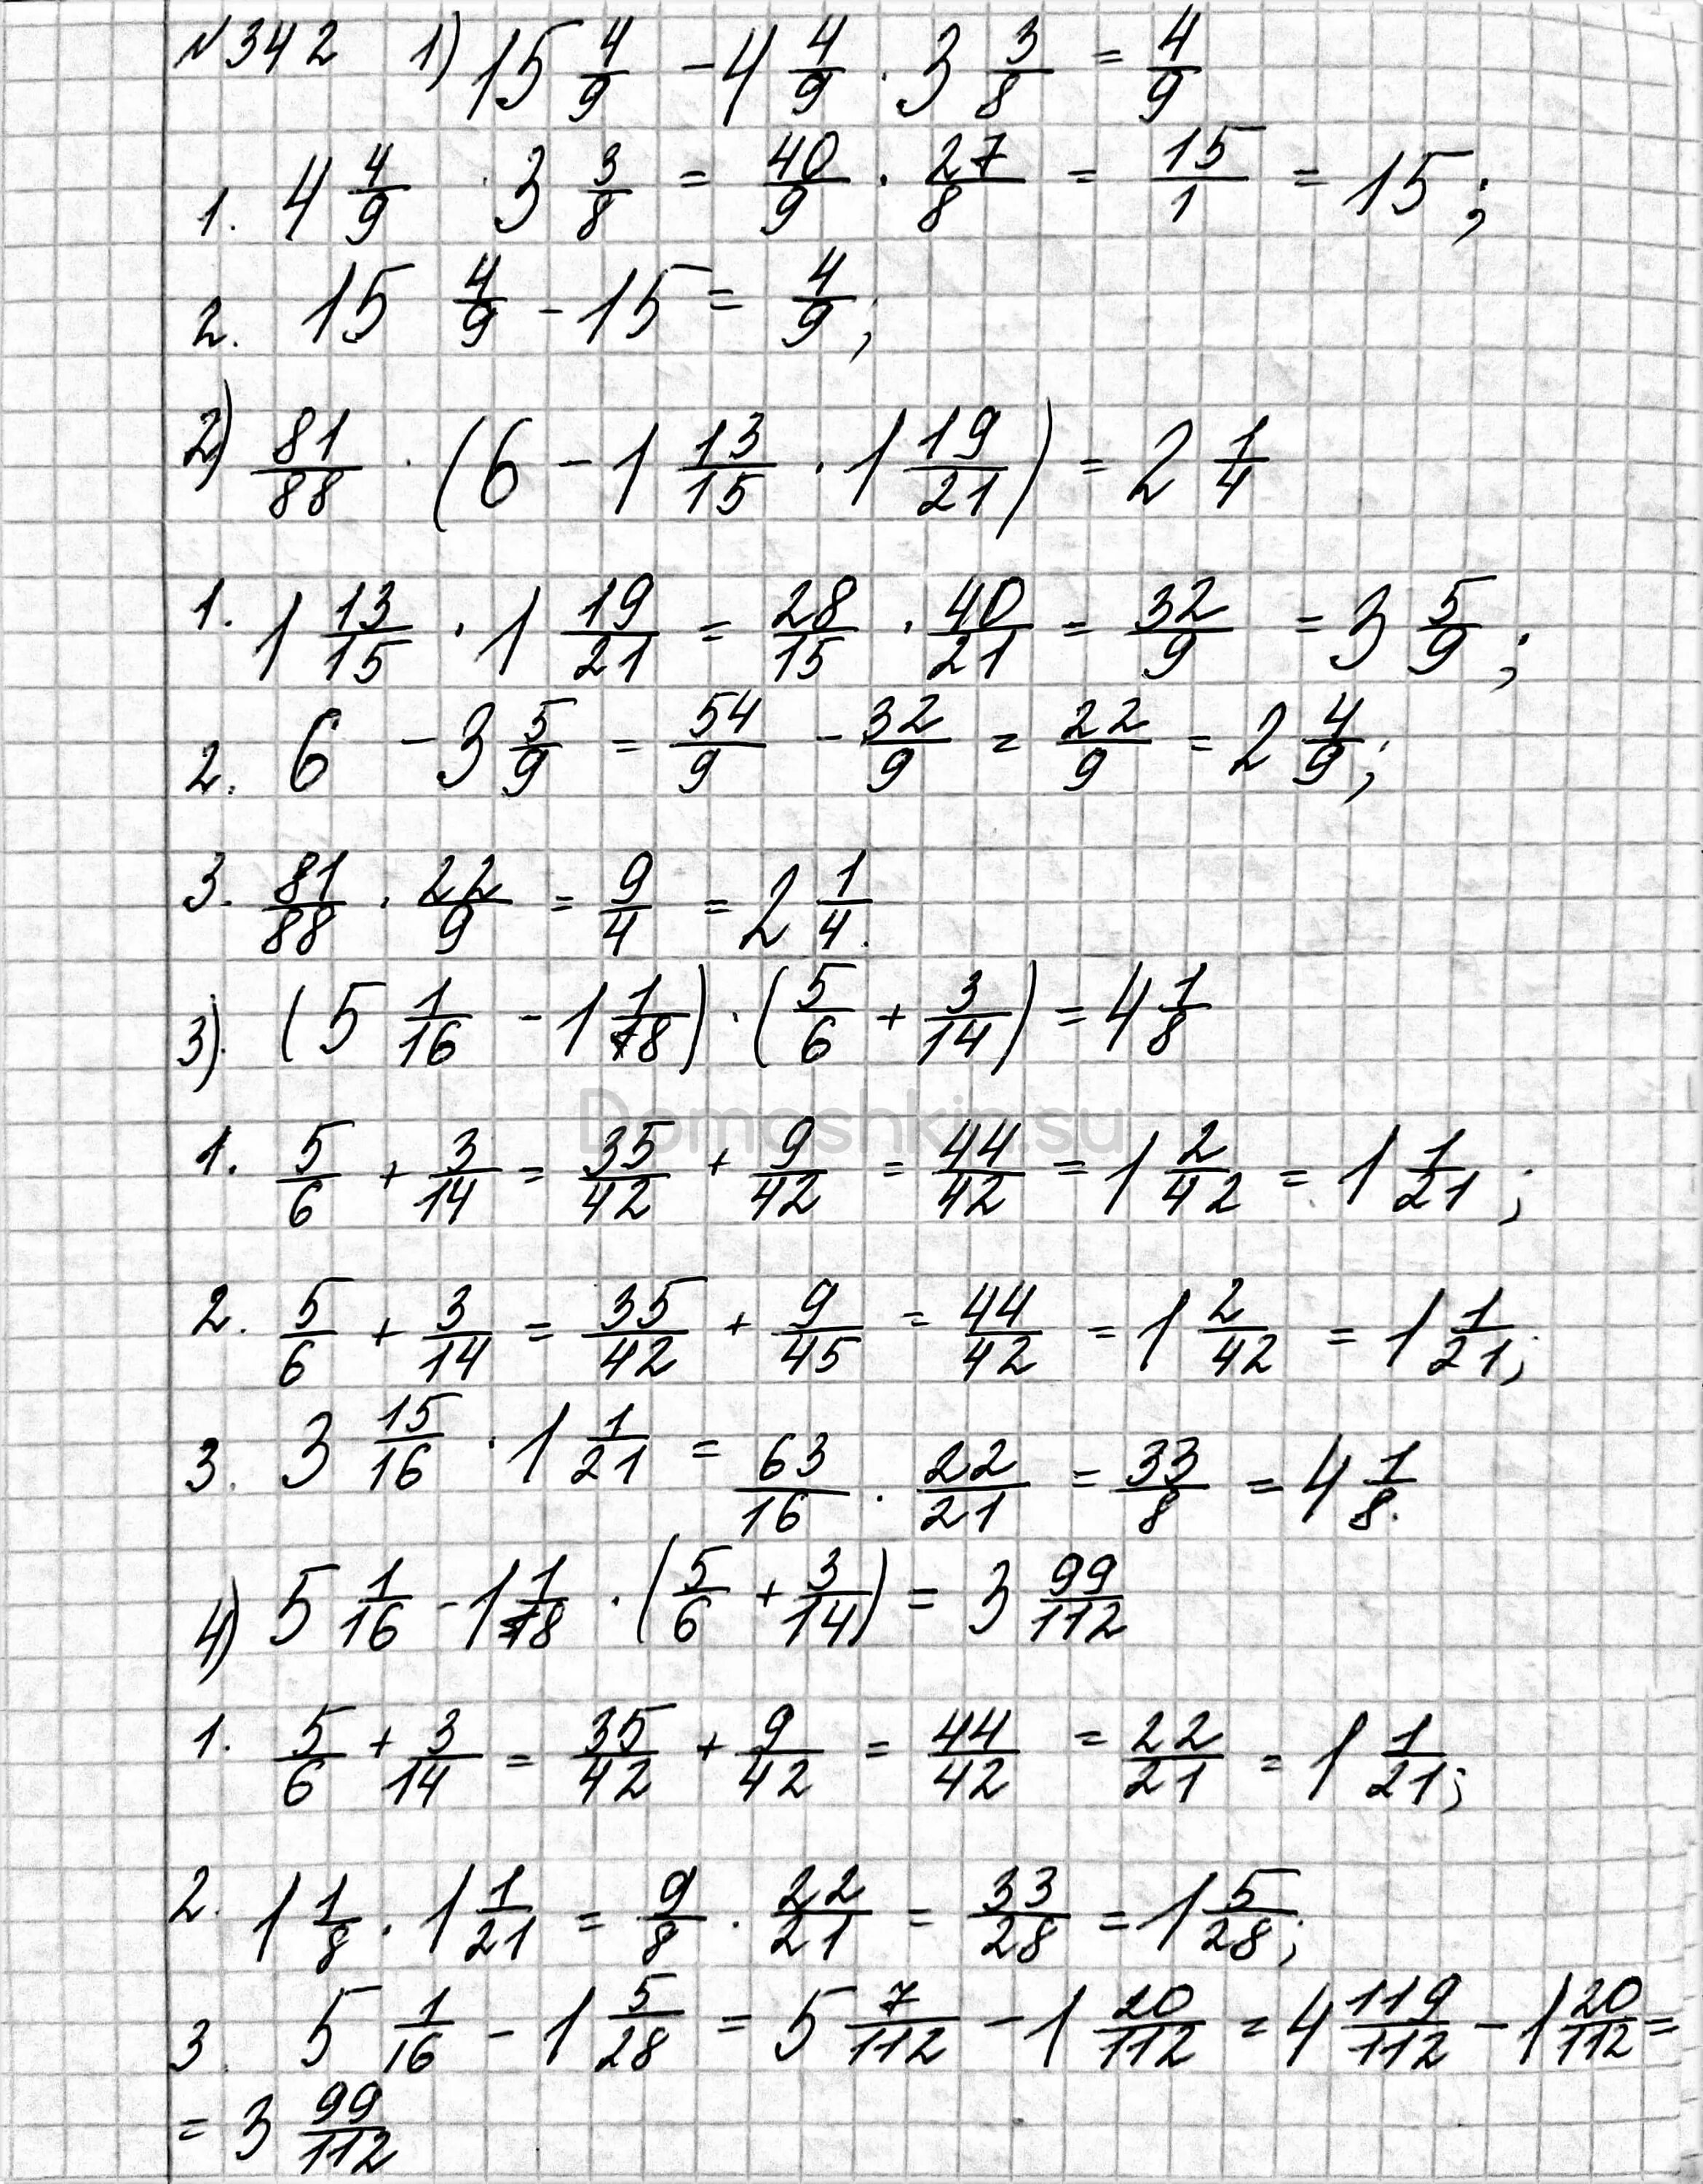 №342 1) 15 4/9 - 4 4/9 · 3 3/8 = 4/9
1. 4 4/9 · 3 3/8 = 40/9 · 27/8 = 15/1 = 15;
2. 15 4/9 - 15 = 4/9;
2) 81/88 · (6 - 1 13/15 · 1 19/21) = 2 1/4
1. 1 13/15 · 1 19/21 = 28/15 · 40/21 = 32/9 = 3 5/9;
2. 6 - 3 5/9 = 54/9 - 32/9 = 22/9 = 2 4/9;
3. 81/88 · 22/9 = 9/4 = 2 1/4.
3). (5 1/16 - 1 1/8) · (5/6 + 3/14) = 4 1/8
Domashkin.su
1. 5/6 + 3/14 = 35/42 + 9/42 = 44/42 = 1 2/42 = 1 1/21;
2. 5/6 + 3/14 = 35/42 + 9/45 = 44/42 = 1 2/42 = 1 1/21;
3. 3 15/16 · 1 1/21 = 63/16 · 22/21 = 33/8 = 4 1/8.
4) 5 1/16 - 1 1/8 · (5/6 + 3/14) = 3 99/112
1. 5/6 + 3/14 = 35/42 + 9/42 = 44/42 = 22/21 = 1 1/21;
2. 1 1/8 · 1 1/21 = 9/8 · 22/21 = 33/28 = 1 5/28;
3. 5 1/16 - 1 5/28 = 5 7/112 - 1 20/112 = 4 119/112 - 1 20/112 =
= 3 99/112